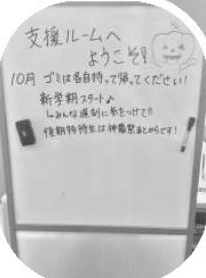 支援ルームへ
ようこそ!
10月 ゴミは各自持って帰ってください!
新学期スタート♪
↳みんな遅刻に気をつけて!!
後期特待生は神農祭あとからです!